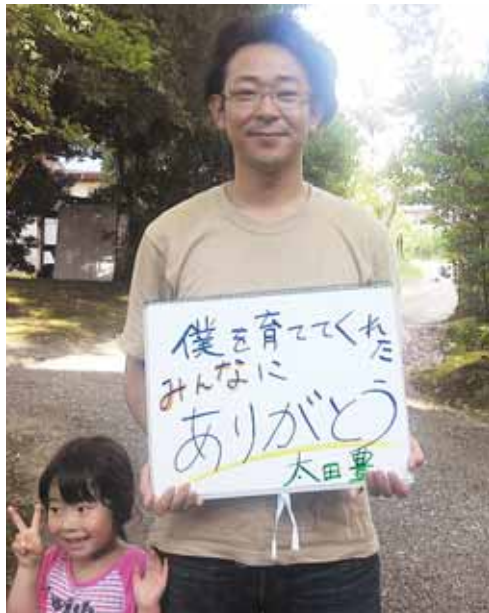 僕を育ててくれた
みんなに
ありがとう
太田豊